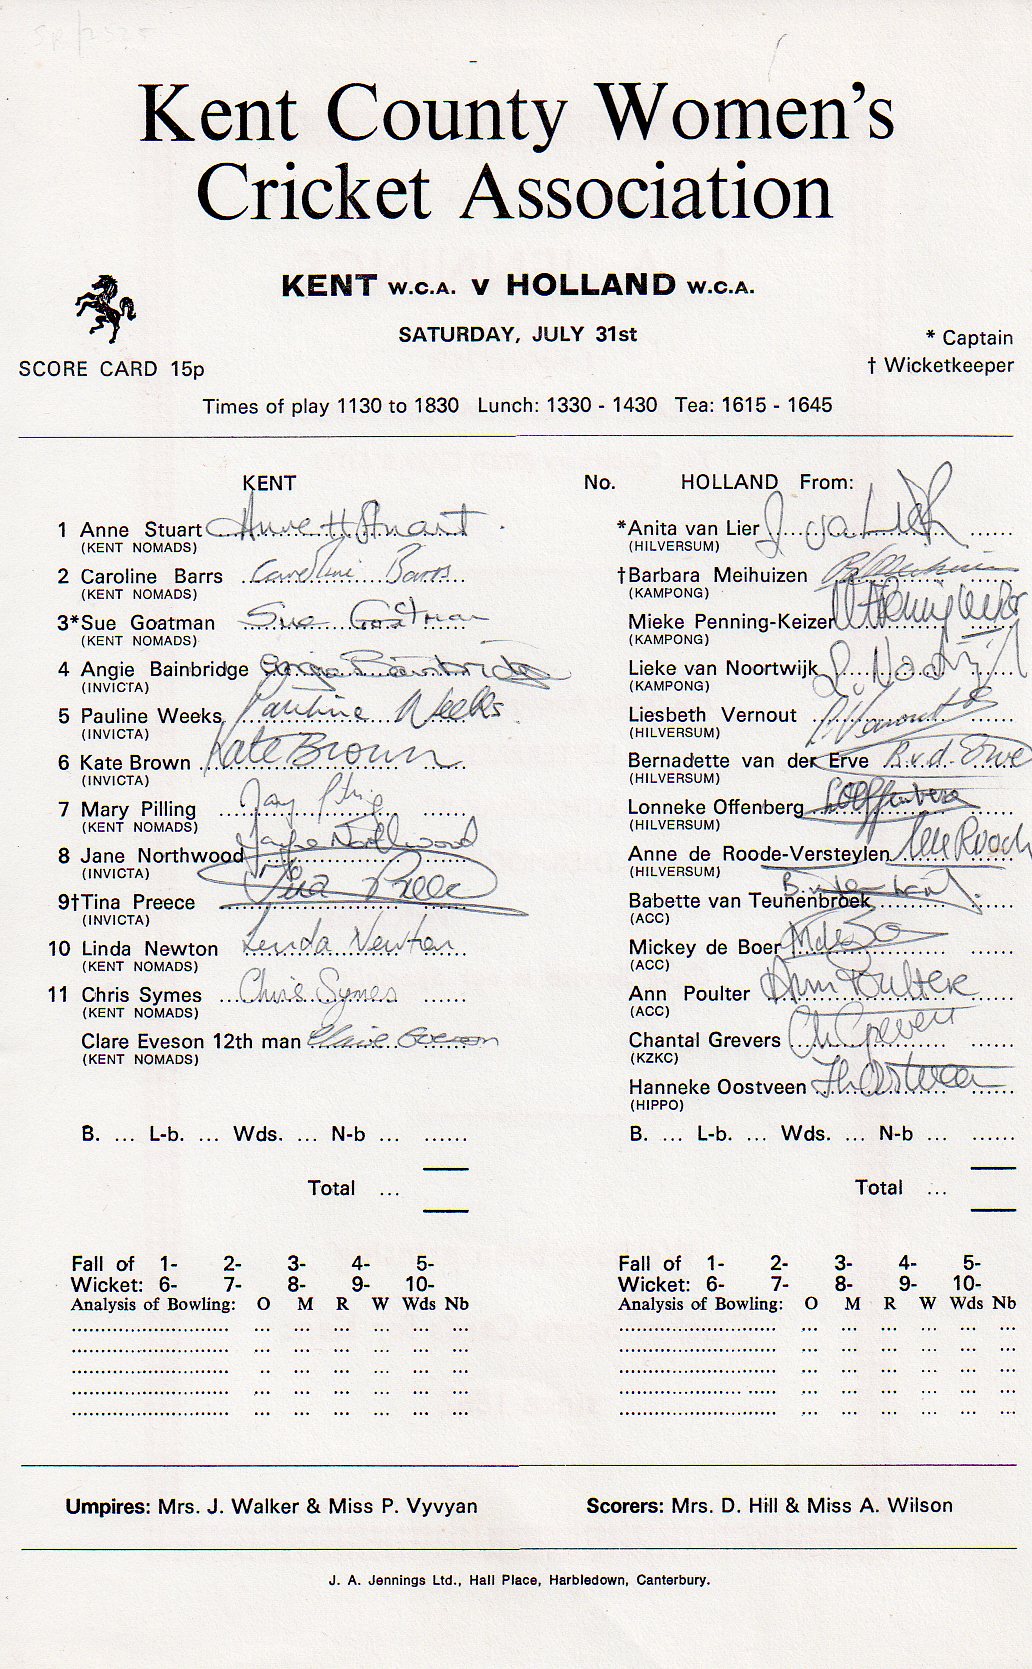 Kent County Women's
Cricket Association
KENT W.C.A. V HOLLAND W.C.A.
SATURDAY, JULY 31st
* Captain
SCORE CARD 15p
† Wicketkeeper
Times of play 1130 to 1830 Lunch: 1330 - 1430 Tea: 1615 - 1645
KENT
1 Anne Stuart Anne H Stuart
(KENT NOMADS)
2 Caroline Barrs Caroline Barrs
(KENT NOMADS)
3*Sue Goatman Sue Goatman
(KENT NOMADS)
4 Angie Bainbridge Angie Bainbridge
(INVICTA)
5 Pauline Weeks Pauline Weeks
(INVICTA)
6 Kate Brown Kate Brown
(INVICTA)
7 Mary Pilling
(KENT NOMADS)
8 Jane Northwood Northwood
(INVICTA)
9†Tina Preece Tina Preece
(INVICTA)
10 Linda Newton Linda Newton
(KENT NOMADS)
11 Chris Symes Chris Symes
(KENT NOMADS)
Clare Eveson 12th man Claire Eveson
(KENT NOMADS)
B. ... L-b. ... Wds. ... N-b ... ......
Total ...
Fall of 1- 2- 3- 4- 5-
Wicket: 6- 7- 8- 9- 10-
Analysis of Bowling: O M R W Wds Nb
No. HOLLAND From:
*Anita van Lier van Lier
(HILVERSUM)
†Barbara Meihuizen
(KAMPONG)
Mieke Penning-Keizer
(KAMPONG)
Lieke van Noortwijk
(KAMPONG)
Liesbeth Vernout
(HILVERSUM)
Bernadette van der Erve B.v.d. Erve
(HILVERSUM)
Lonneke Offenberg Offenberg
(HILVERSUM)
Anne de Roode-Versteylen
(HILVERSUM)
Babette van Teunenbroek
(ACC)
Mickey de Boer
(ACC)
Ann Poulter Ann Poulter
(ACC)
Chantal Grevers Ch Grevers
(KZKC)
Hanneke Oostveen JH Oostveen
(HIPPO)
B. ... L-b. ... Wds. ... N-b ... ......
Total ...
Fall of 1- 2- 3- 4- 5-
Wicket: 6- 7- 8- 9- 10-
Analysis of Bowling: O M R W Wds Nb
Umpires: Mrs. J. Walker & Miss P. Vyvyan
Scorers: Mrs. D. Hill & Miss A. Wilson
J. A. Jennings Ltd., Hall Place, Harbledown, Canterbury.